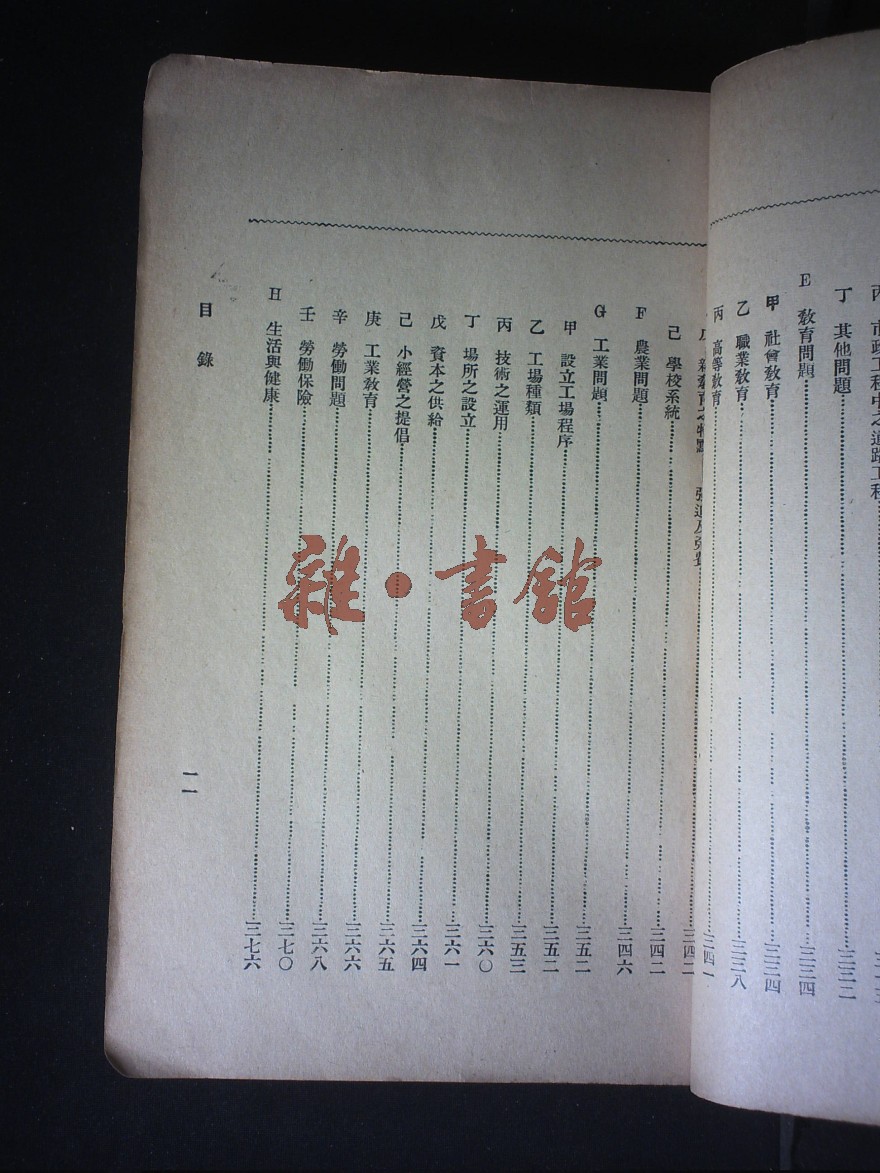 丙 市政工程中之道路工程
丁 其他問題……三三二
E 教育問題……三三四
甲 社會教育……三三四
乙 職業教育……三三八
丙 高等教育……三四一
教育之特點 強迫及免費……三四二
己 學校系統……三四二
F 農業問題……三四六
G 工業問題……三五二
甲 設立工場程序……三五二
乙 工場種類……三五三
丙 技術之運用……三六〇
丁 場所之設立……三六一
戊 資本之供給……三六四
己 小經營之提倡……三六五
庚 工業教育……三六六
辛 勞働問題……三六八
壬 勞働保險……三七〇
H 生活與健康……三七六
目錄
一一
雜·書館